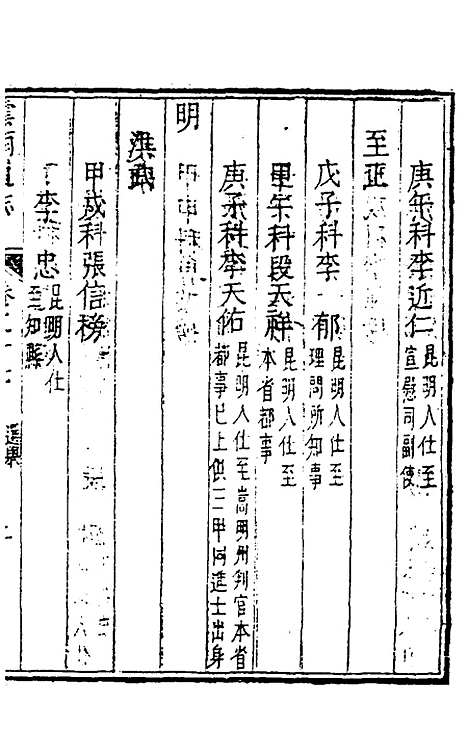 庚午科李近仁昆明人仕至宣慰司副使
至正
戊子科李郁昆明人仕至理問所知事
甲午科段天祥昆明人仕至本省都事
庚子科李天佑昆明人仕至嵩明州判官本省都事已上俱三甲同進士出身
明
洪武
甲戌科張信榜
李忠昆明人仕至知縣
雲南通志
選舉